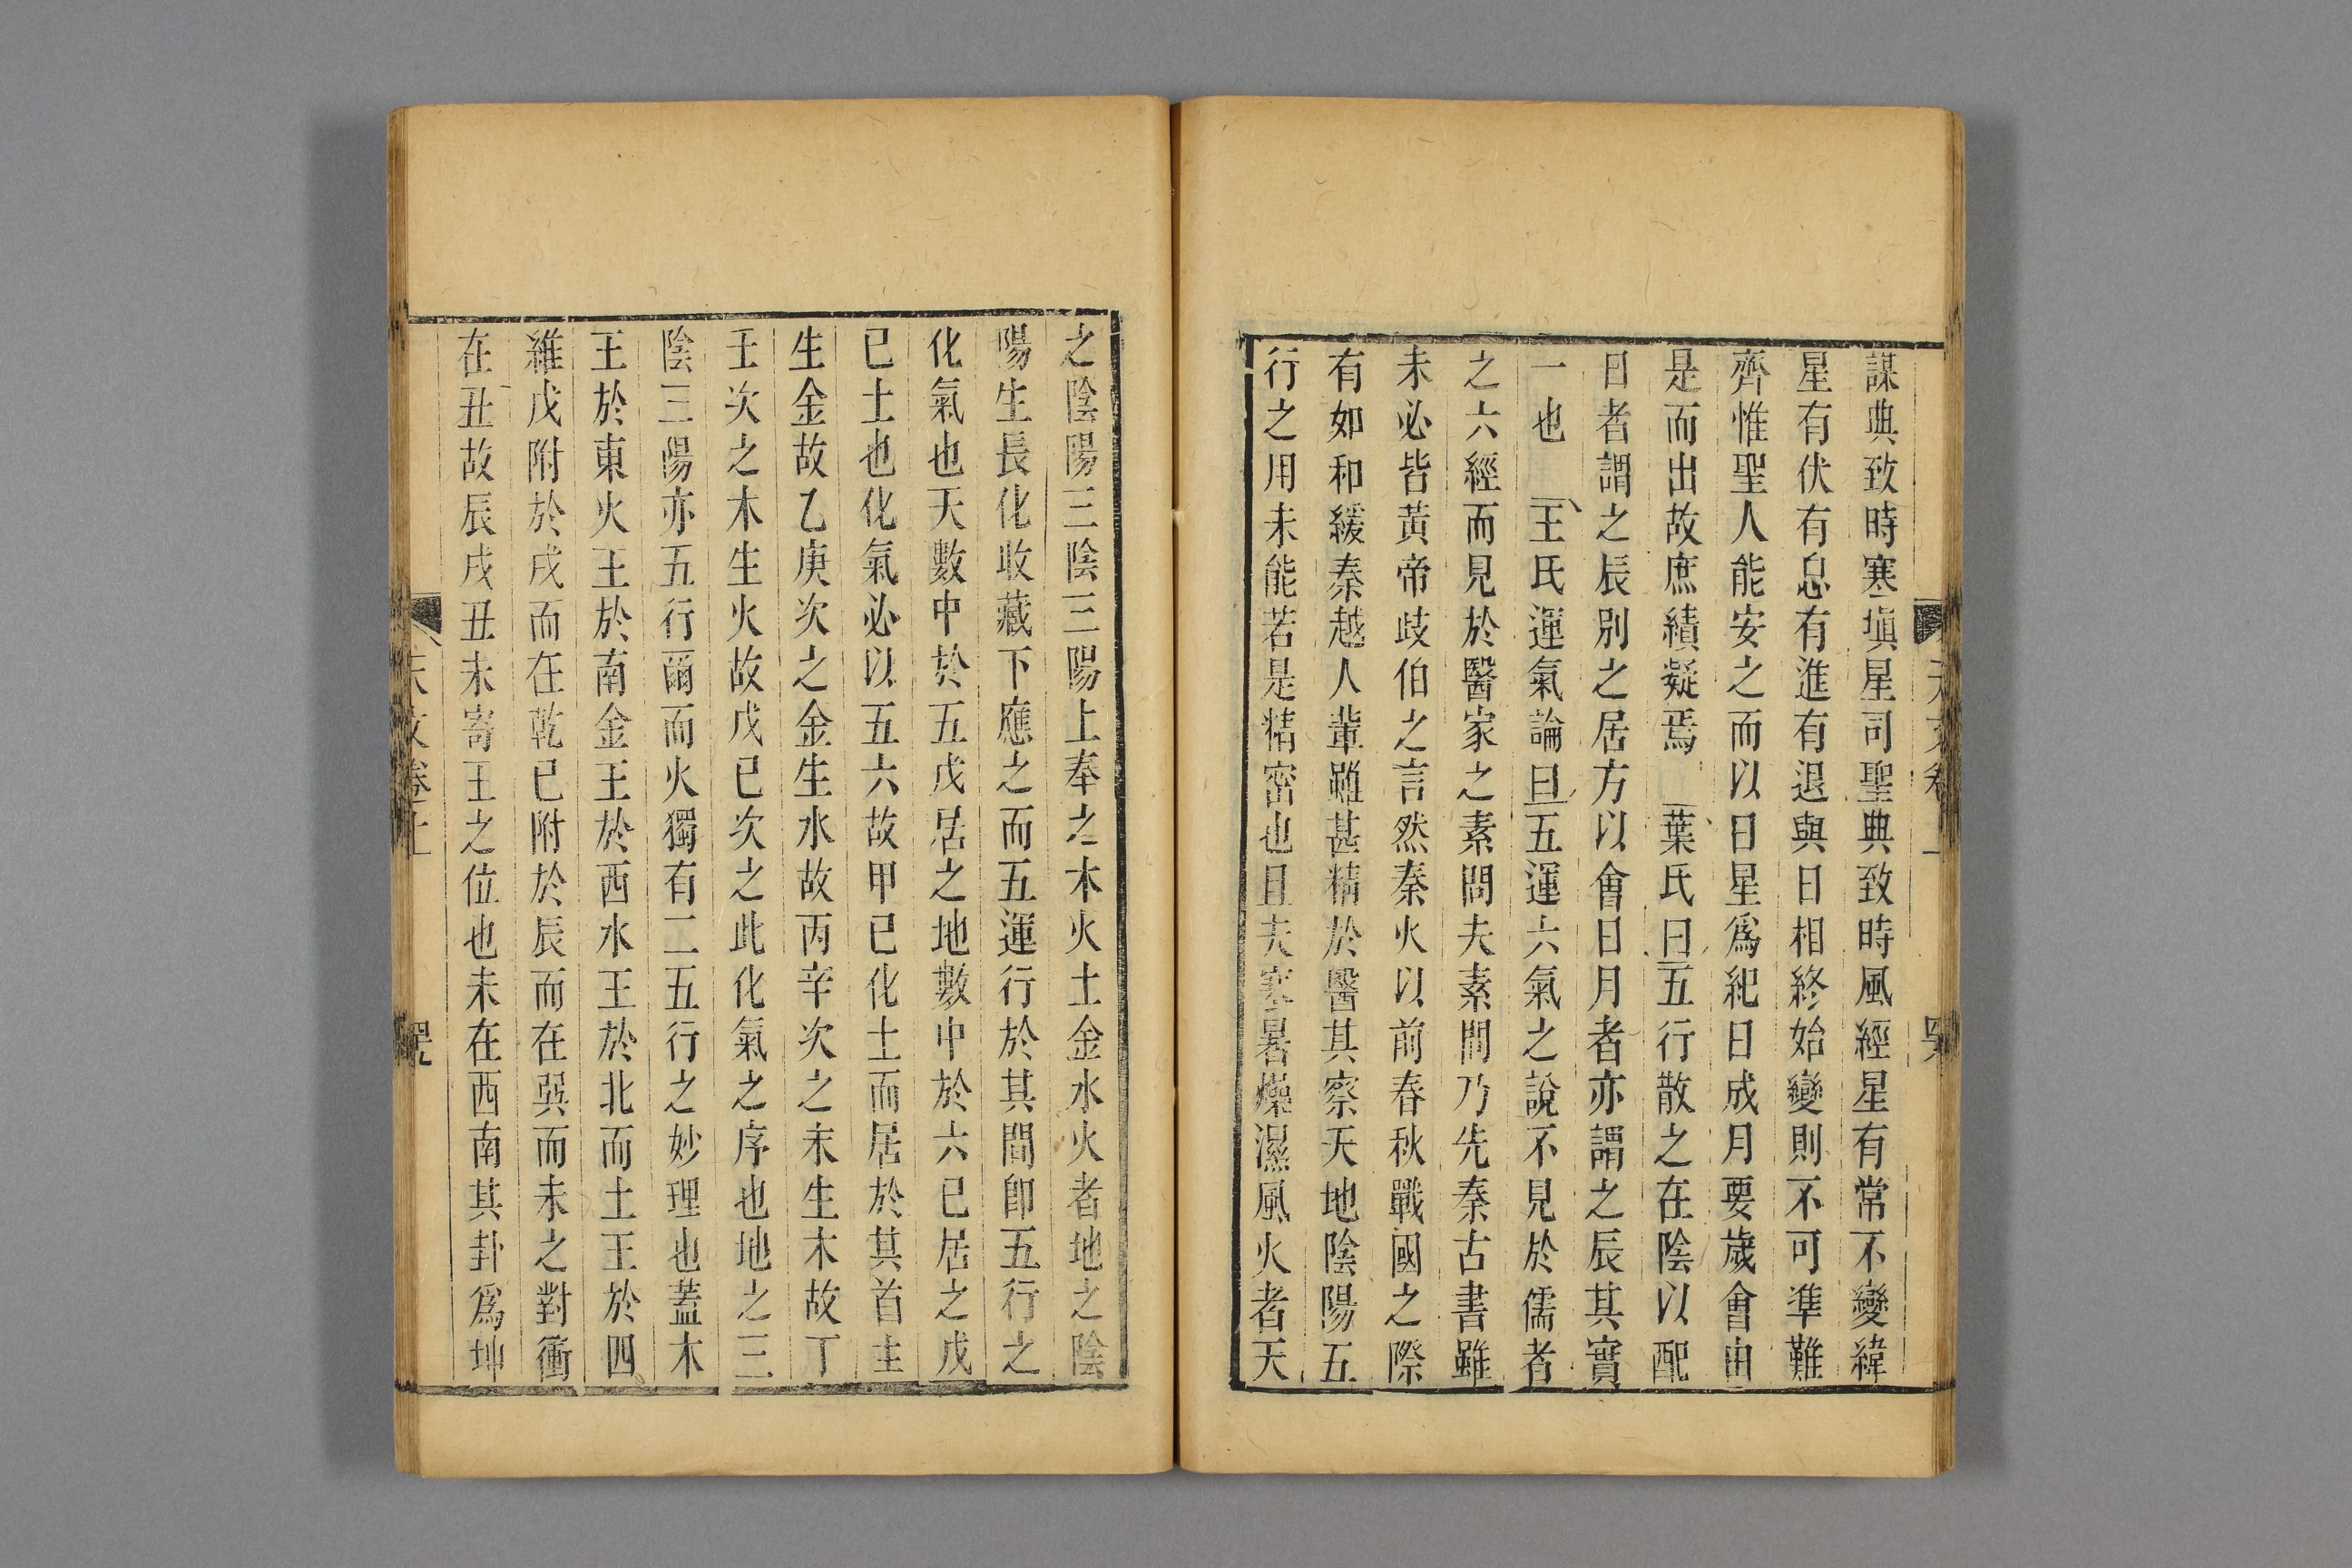 謀典致時寒塡星司聖典致時風經星有常不變緯
星有伏有息有進有退與日相終始變則不可準難
齊惟聖人能安之而以日星爲紀日成月要歲會由
是而出故庶績凝焉　葉氏曰五行散之在陰以配
日者謂之辰別之居方以會日月者亦謂之辰其實
一也　王氏運氣論曰五運六氣之說不見於儒者
之六經而見於醫家之素問夫素問乃先秦古書雖
未必皆黃帝歧伯之言然秦火以前春秋戰國之際
有如和緩秦越人輩雖甚精於醫其察天地陰陽五
行之用未能若是精密也且夫寒暑燥濕風火者天
之陰陽三陰三陽上奉之木火土金水火者地之陰
陽生長化收藏下應之而五運行於其間卽五行之
化氣也天數中於五戊居之地數中於六已居之戊
已土也化氣必以五六故甲已化土而居於其首土
生金故乙庚次之金生水故丙辛次之水生木故丁
壬次之木生火故戊已次之此化氣之序也地之三
陰三陽亦五行爾而火獨有二五行之妙理也蓋木
王於東火王於南金王於西水王於北而土王於四
維戊附於戌而在乾已附於辰而在巽而未之對衝
在丑故辰戌丑未寄王之位也未在西南其卦爲坤
天文卷上